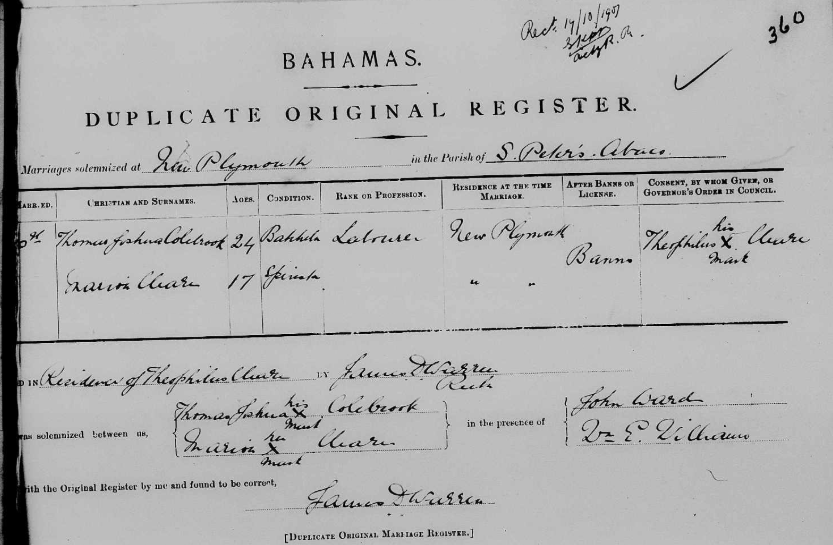 Rect. 19/10/1907
360
BAHAMAS.
DUPLICATE ORIGINAL REGISTER.
Marriages solemnized at New Plymouth in the Parish of S. Peter's Abaco
MARRIED. CHRISTIAN AND SURNAMES. AGES. CONDITION. RANK OR PROFESSION. RESIDENCE AT THE TIME MARRIAGE. AFTER BANNS OR LICENSE. CONSENT, BY WHOM GIVEN, OR GOVERNOR'S ORDER IN COUNCIL.
Thomas Joshua Colebrook 24 Bachelor Labourer New Plymouth Banns Theophilus his X mark
Marion 17 Spinster " "
D IN Residence of Theophilus BY James D Warren
Thomas Joshua his X mark Colebrook
was solemnized between us, in the presence of
Marion her X mark
John
Wm E. Williams
with the Original Register by me and found to be correct,
James D Warren
[DUPLICATE ORIGINAL MARRIAGE REGISTER.]